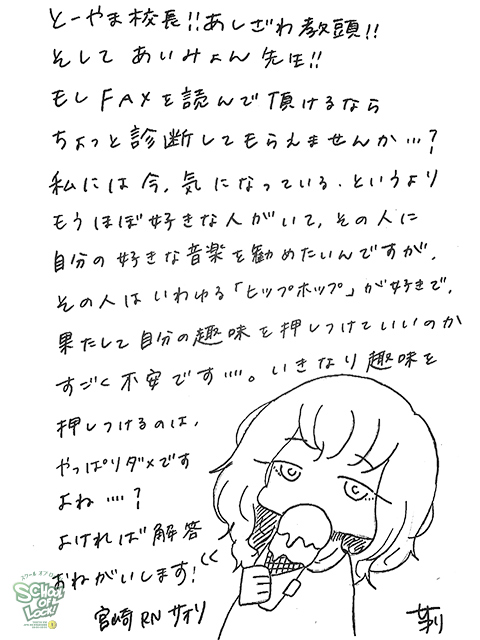 とーやま校長!!あしざわ教頭!!
そして あいみょん 先生!!
もし FAXを読んで頂けるなら
ちょっと診断してもらえませんか…?
私には今、気になっている、というより
もうほぼ好きな人がいて、その人に
自分の好きな音楽を勧めたいんですが、
その人はいわゆる「ヒップホップ」が好きで、
果たして自分の趣味を押しつけていいのか
すごく不安です……。いきなり趣味を
押しつけるのは、
やっぱりダメです
よね……?
よければ解答
おねがいします!
宮崎 RN サオリ
スクール オブ ロック
SCHOOL
OF
LOCK!